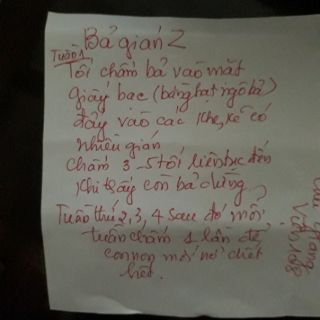 Bả gián Z
Tuần 1
Tối chấm bả vào mặt
giấy bạc (bằng hạt ngô bả)
đẩy vào các khe, kẽ có
nhiều gián
Chấm 3-5 tối liên tục đến
khi thấy còn bả dừng
Tuần thứ 2, 3, 4 sau đó mỗi
tuần chấm 1 lần để
con non mới nở chết
hết.